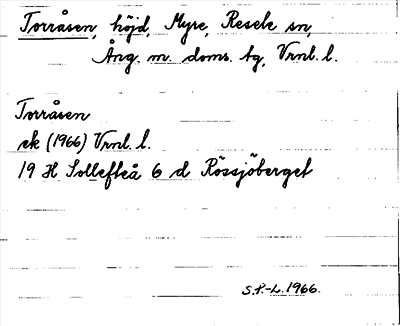 Torråsen, höjd, Myre, Resele sn,
Ång. m. doms. tg, Vrnl. l.
Torråsen
ek (1966) Vrnl. l.
19 H Sollefteå 6 d Rössjöberget
S.P.-L. 1966.